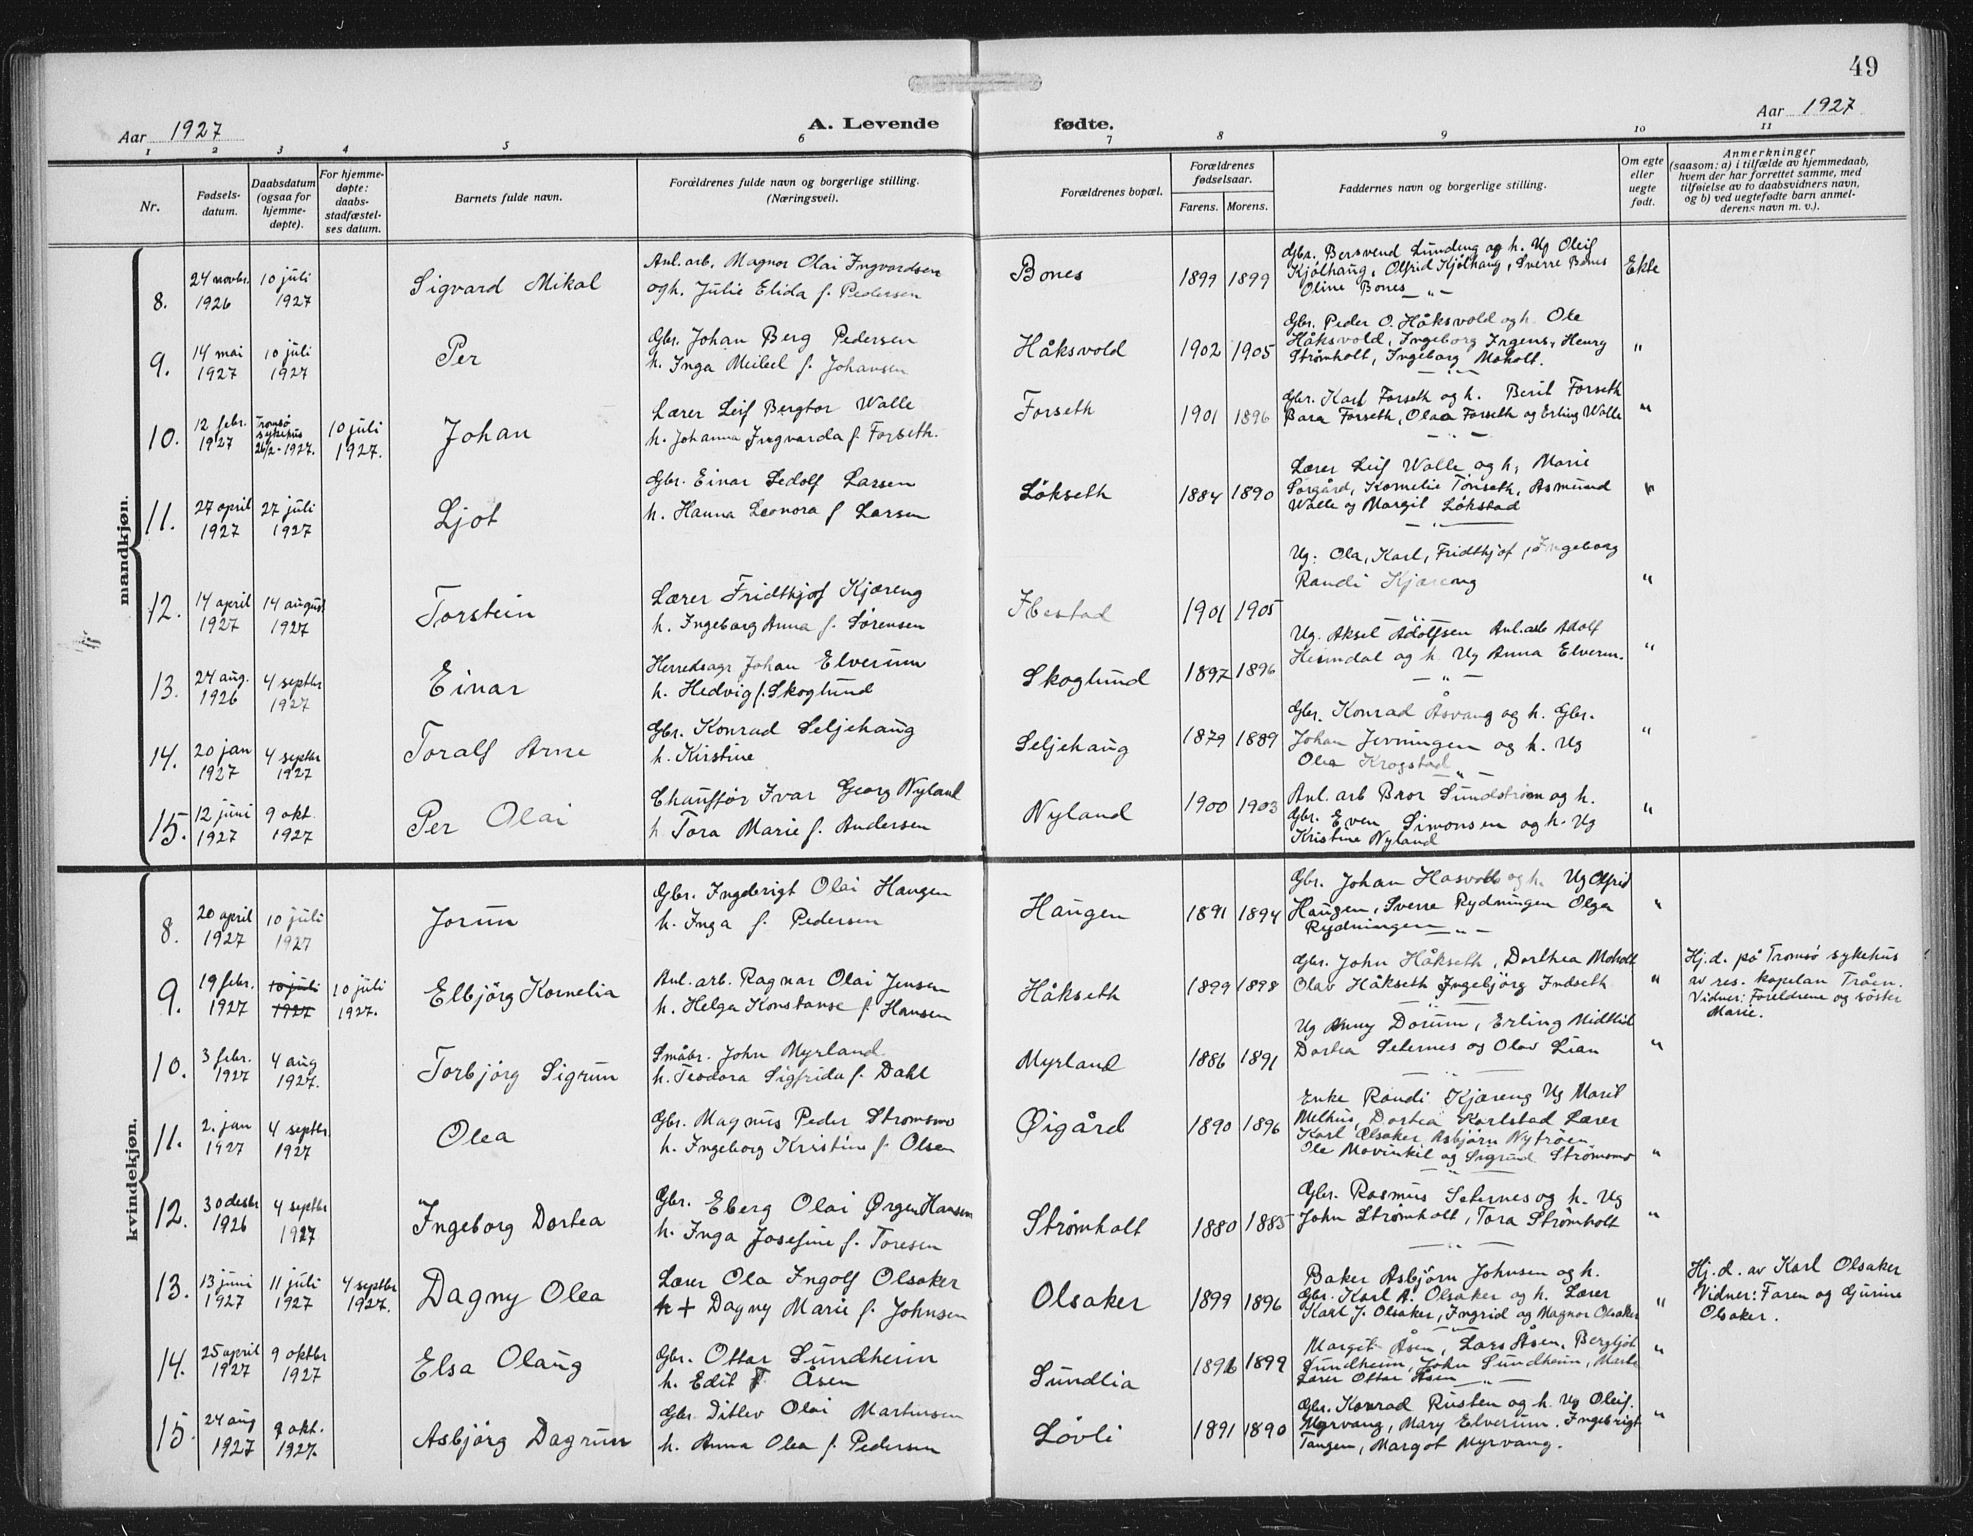 49
Aar 1927
A. Levende
fødte.
Aar 1927
1 2 3 4 5 6 7 8 9 10 11
Nr.
Fødsels-
datum.
Daabsdatum
(ogsaa for
hjemme-
døpte).
For hjemme-
døpte:
daabs-
stadfæstel-
ses datum.
Barnets fulde navn.
Forældrenes fulde navn og borgerlige stilling.
(Næringsvei).
Forældrenes bopæl.
Forældrenes
fødselsaar.
Farens. Morens.
Faddernes navn og borgerlige stilling.
Om egte
eller
uegte
født.
Anmerkninger
(saasom: a) i tilfælde av hjemmedaab,
hvem der har forrettet samme, med
tilføielse av to daabsvidners navn,
og b) ved uegtefødte barn anmel-
derens navn m. v.).
mandkjøn.
8.
24 novbr.
1926
10 juli
1927
Sigvard Mikal
Anl. arb. Magnor Olai Ingvardsen
og h. Julie Elida f. Pedersen
Bones
1899 1899
Gbr. Bersvend Lundeng og h. Ug Oleif
Kjølhaug, Olfrid Kjølhaug, Sverre Bones
Oline Bones
Ekte
9.
14 mai
1927
10 juli
1927
Per
Gbr. Johan Berg Pedersen
h. Inga Meibel f. Johansen
Håksvold
1902 1905
Gbr. Peder O. Håksvold og h. Ole
Håksvold, Ingeborg Irgens, Henry
Strømholt, Ingeborg Moholt.
"
10.
12 febr.
1927
Tromsø
sykehus
26/2-1927.
10 juli
1927.
Johan
Lærer Leif Bergtor Walle
h. Johanna Ingvarda f. Forseth.
Forseth
1901 1896
Gbr. Karl Forseth og h. Berit Forseth
Bara Forseth, Olaa Forseth og Erling Walle
"
11.
27 april
1927
27 juli
1927
Ljot
Gbr. Einar Sedolf Larsen
h. Hanna Leonora f Larsen
Løkseth
1884 1890
Lærer Leif Walle og h, Marie
Sørgård, Kornelie Tønseth, Asmund
Walle og Margit Løkstad
"
12.
14 april
1927
14 august
1927
Torstein
Lærer Fridthjof Kjæreng
h. Ingeborg Anna f. Sørensen
Ibestad
1901 1905
Ug: Ola, Karl, Fridthjof, Ingeborg
Randi Kjæreng
"
13.
24 aug.
1926
4 septbr
1927
Einar
Herredsagr Johan Elverum
h. Hedvig f. Skoglund
Skoglund
1897 1896
Ug. Aksel Adolfsen Anl. arb Adolf
Heimdal og h. Ug Anna Elverum.
"
14.
20 jan
1927
4 septbr
1927
Toralf Arne
Gbr. Konrad Seljehaug
h. Kirstine
Seljehaug
1879 1889
Gbr. Konrad Åsvang og h. Gbr.
Johan Jevningen og h. Ug
Olea Krogstad
"
15.
12 juni
1927
9 okt.
1927
Per Olai
Chauffør Ivar Georg Nyland
h Tora Marie f. Andersen
Nyland
1900 1903
Anl. arb Bror Sundstrøm og h.
Gbr. Even Simonsen og h. Ug
Kristine Nyland
"
kvindekjøn.
8.
20 april
1927
10 juli
1927
Jorun
Gbr. Ingebrigt Olai Haugen
h. Inga f. Pedersen
Haugen
1891 1894
Gbr. Johan Hasvold og h. Ug Olfrid
Haugen, Sverre Rydningen Olga
Rydningen
"
9.
19 febr.
1927
10 juli
1927
10 juli
1927.
Elbjörg Kornelia
Anl. arb. Ragnar Olai Jensen
h. Helga Konstanse f Hansen
Håkseth
1899 1898
Gbr. John Håkseth, Dorthea Moholt
Olav Håkseth Ingebjörg Indseth
"
Hj. d. på Tromsø sykehus
av res. kapelan Tråen.
Vidner: Foreldrene og søster
Marie.
10.
3 febr.
1927
4 aug
1927.
Torbjörg Sigrun
Småbr. John Myrland
h. Teodora Sigfrida f. Dahl
Myrland
1886 1891
Ug Anny Dorum, Erling Midtlid
Dortea Seternes og Olav Lian
"
11.
2. jan
1927
4 septbr.
1927
Olea
Gbr. Magnus Peder Strømsmo
h. Ingeborg Kristine f. Olsen
Øigård
1890 1896
Enke Randi Kjæreng Ug Marit
Melhus, Dortea Karlstad Lærer
Karl Olsaker, Asbjørn Nytrøen
Ole Movinkel og Sigrund Strømsmo
"
12.
30 desbr
1926
4 septbr
1927
Ingeborg Dortea
Gbr. Eberg Olai Ørger Hansen
h. Inga Josefine f. Toresen
Strømholt
1880 1885
Gbr. Rasmus Seternes og h. Ug
John Strømholt, Tora Strømholt
"
13.
13 juni
1927
11 juli
1927
4 septbr
1927.
Dagny Olea
Lærer Ola Ingolf Olsaker
h + Dagny Marie f. Johnsen
Olsaker
1899 1896
Baker Asbjørn Johnsen og h.
Gbr. Karl A. Olsaker og h. Lærer
Karl J. Olsaker, Ingrid og Magnor Olsaker
"
Hj. d. av Karl Olsaker
Vidner: Faren og Gurine
Olsaker.
14.
25 april
1927
9 oktbr
1927
Elsa Olaug
Gbr. Ottar Sundheim
h. Edit f Åsen
Sundlia
1896 1899
Margit Åsen, Lars Åsen, Bergljot
Sundheim, John Sundheim, Marie
Lærer Ottar Åsen
"
15.
24 aug
1927
9 okt.
1927.
Asbjörg Dagrun
Gbr. Ditlev Olai Martinsen
h. Anna Olea f. Pedersen
Løvli
1891 1890
Gbr. Konrad Rusten og h. Ug Oleif.
Myrvang, Mary Elverum. Ingebrigt
Tangen, Margot Myrvang.
"